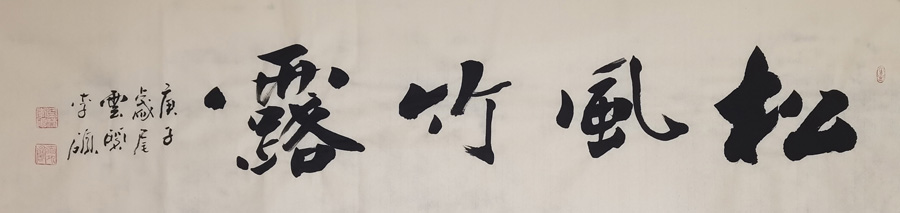 松風竹露
庚子
歲尾
雲
李